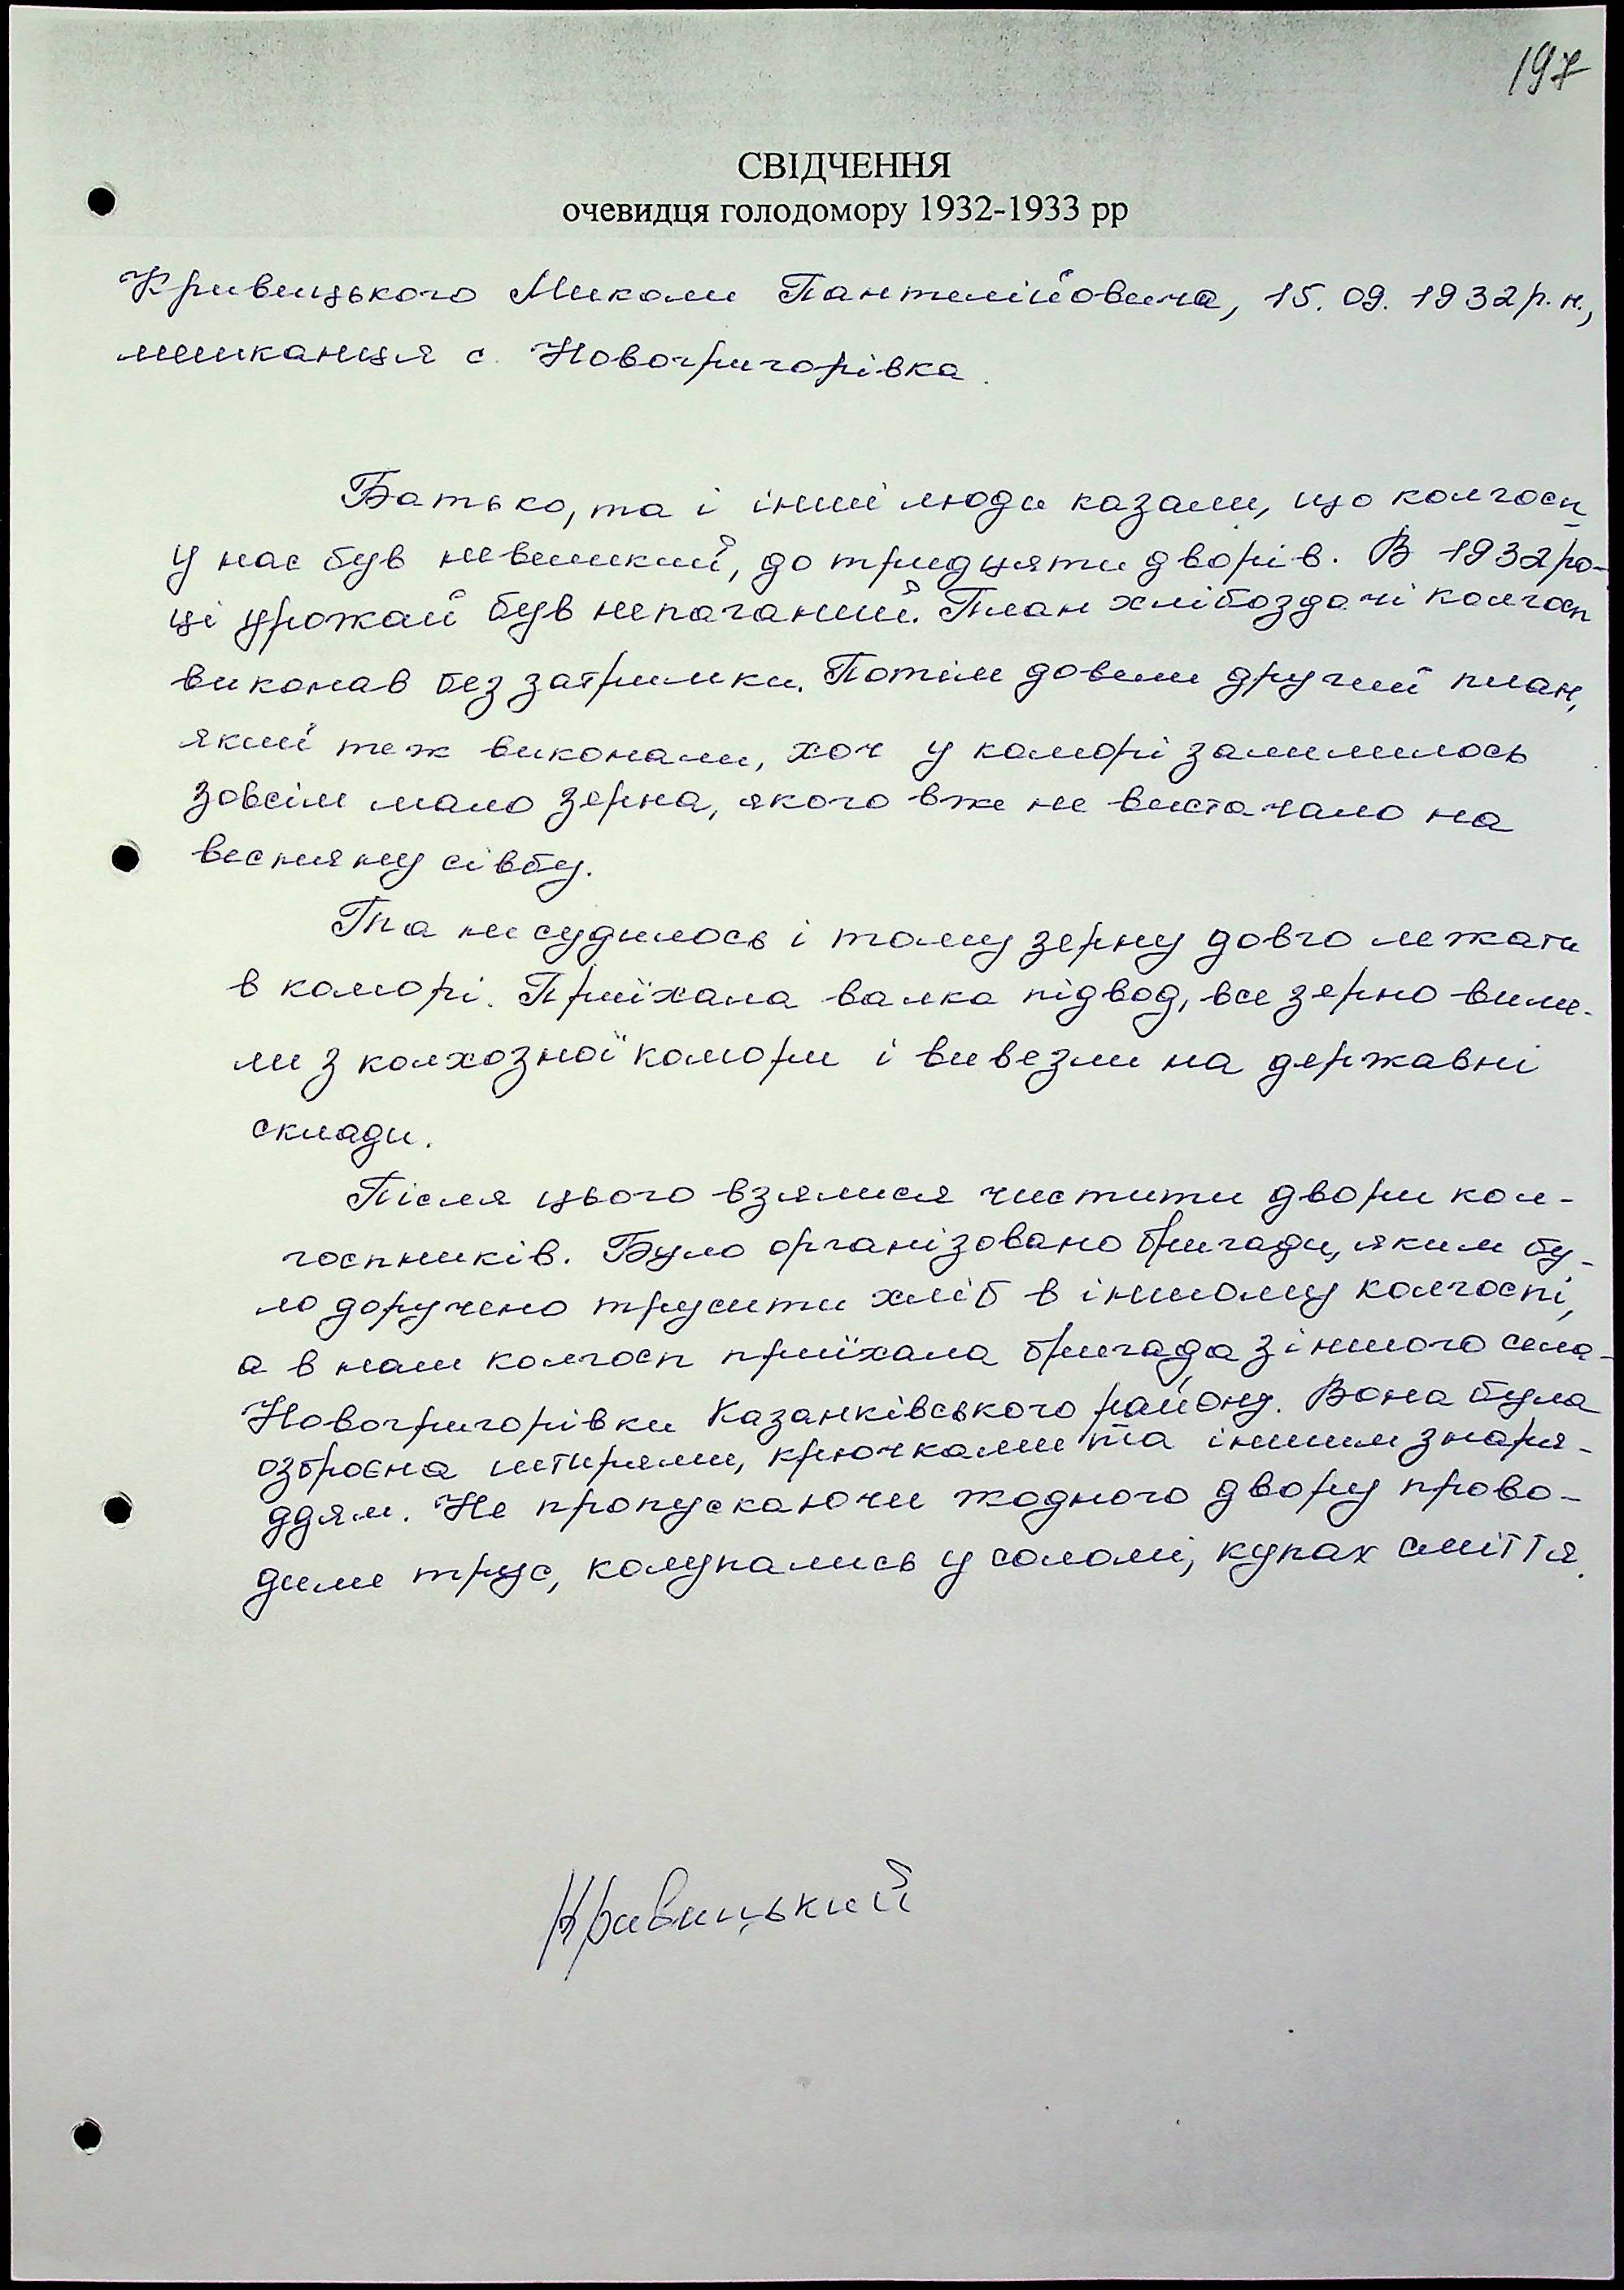 197
СВІДЧЕННЯ
очевидця голодомору 1932-1933 рр
Кривицького Миколи Пантелійовича, 15.09.1932 р.н.,
мешканця с. Новогригорівка.
Батько, та і інші люди казали, що колгосп
у нас був невеликий, до тридцяти дворів. В 1932 ро-
ці урожай був непоганий. План хлібоздачі колгосп
виконав без затримки. Потім довели другий план,
який теж виконали, хоч у коморі залишилось
зовсім мало зерна, якого вже не вистачало на
весняну сівбу.
Та не судилось і тому зерну довго лежати
в коморі. Приїхала валка підвод, все зерно виме-
ли з колхозної комори і вивезли на державні
склади.
Після цього взялися чистити двори кол-
госпників. Було організовано бригади, яким бу-
ло доручено трусити хліб в іншому колгоспі,
а в наш колгосп приїхала бригада з іншого села-
Новогригорівки Казанківського району. Вона була
озброєна штирями, крючками та іншим знаря-
ддям. Не пропускаючи жодного двору прово-
дили трус, колупались у соломі, купах сміття.
Кривицький